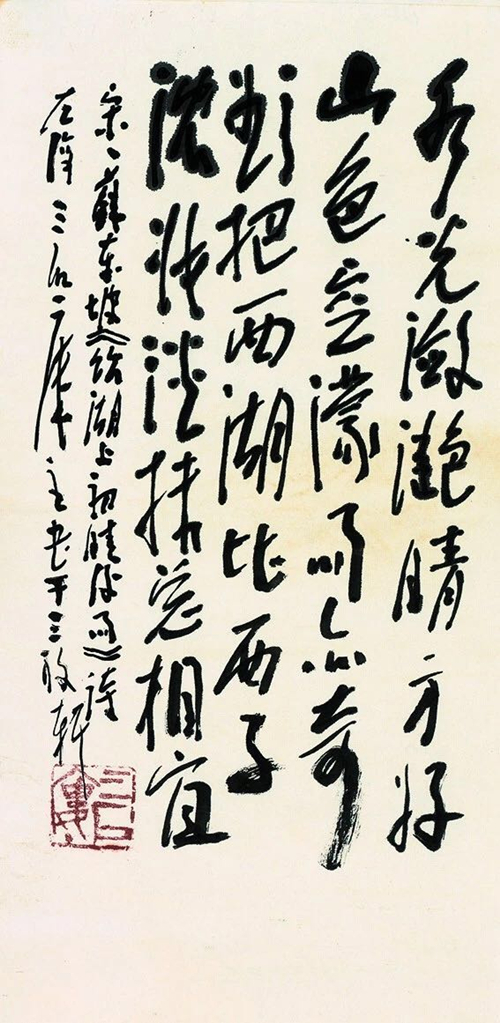 水光潋滟晴方好
山色空濛雨亦奇
欲把西湖比西子
浓妆淡抹总相宜
宋、蘇东坡《饮湖上初晴后雨》诗
左 三 主书于三 轩